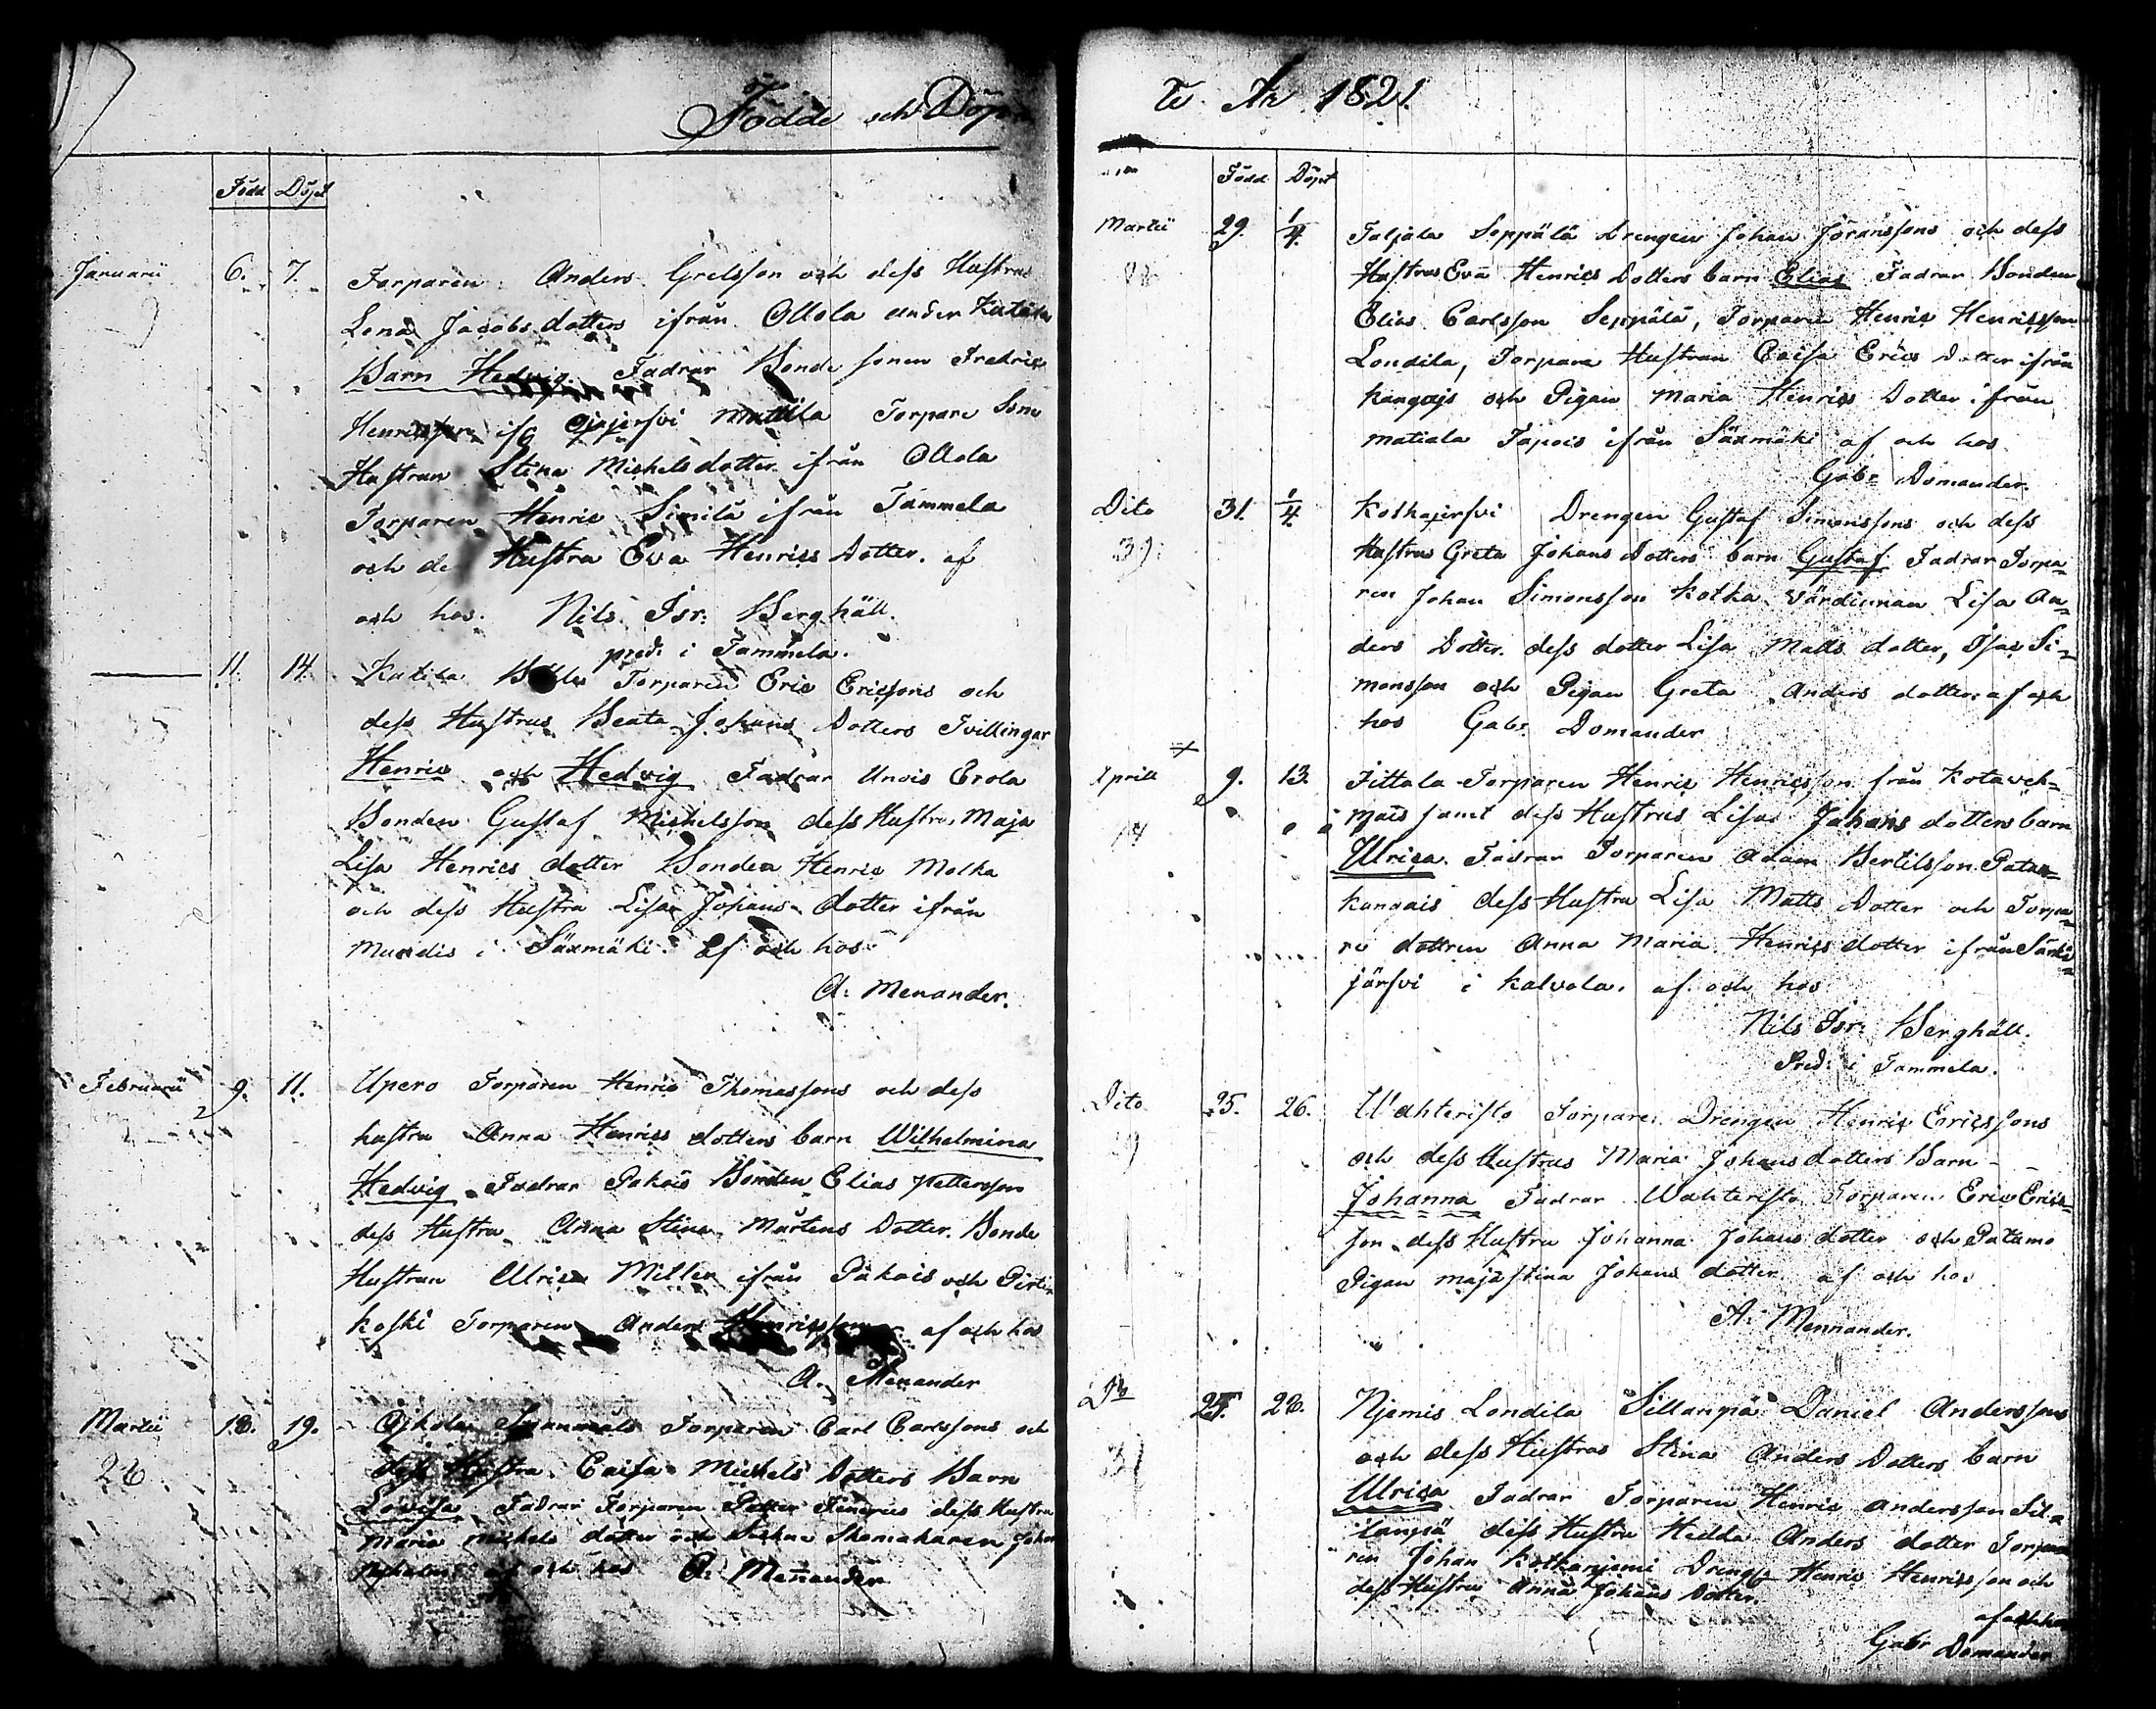 Födde och Döp
Född Döpt
Januarii 6. 7. Torparen Anders Grelsson och dess Hustrus
Lena Jacobs dotters ifrån Ollola under Katila
Barn Hedvig. Fadrar Bonde sonen Fredric
Henricsson Mattila Torpare Sone
Hustrun Stina Michels dotter ifrån Ollola
Torparen Henric Simila ifrån Tammela
och de Hustru Eva Henrics Dotter. af
och hos. Nils Isr: Berghäll.
pred: i Tammela.
11. 14. Katila Torparen Eric Ericssons och
dess Hustrus Beata Johans Dotters Tvillingar
Henric och Hedvig Fadrar Unois Erola
Bonden Gustaf Michelsson dess Hustru Maja
Lisa Henrics dotter Bonden Henric Molka
och dess Hustru Lisa Johans dotter ifrån
i Säxmäki. Af och hos
A: Menander.
Februarii 9. 11. Upero Torparen Henric Thomassons och dess
hustru Anna Henrics dotters barn Wilhelmina
Hedvig Fadrar Pakais Bonden Elias Pettersson
dess Hustru Anna Stina Mårtens Dotter. Bonde
Hustrun Ulrica Miller ifrån Päkais och
koski Torparen Anders Henricsson af och hos
A. Menander
Martii 18. 19. Torparen Carl Carlssons och
26 dess Hustru Caisa Michels Dotters Barn
Lovisa Fadrar Torparen Petter dess Hustru
Maria Michels dotter och Skomakaren Johan
af och hos A: Menander
te År 1821.
Född Döpt
Martii 29. 1/4. Taljala Seppälä Drengen Johan Joranssons och dess
Hustrus Eva Henrics Dotters barn Elias Fadrar Bonden
Elias Carlsson Seppälä, Torparen Henric Henricsson
Londila, Torpare Hustrun Caisa Erics Dotter ifrån
kangais och Pigan Maria Henrics Dotter ifrån
matiala Tapois ifrån Säxmäki af och hos
Gabr Domander.
Dito 31. 1/4. Kotkajersvi Drengen Gustaf Simonssons och dess
39 Hustrus Greta Johans Dotters barn Gustaf Fadrar Torpa=
ren Johan Simonsson Kotka Värdinnan Lisa An=
ders Dotter. dess dotter Lisa Matts dotter, Isac Si=
monsson och Pigan Greta Anders dotter. af och
hos Gabr Domander
Aprill 9. 13. Jittala Torparen Henric Henricsson från Kotaveh=
mais samt dess Hustrus Lisas Johans dotters barn
Ulrica. Fadrar Torparen Adam Bertilsson
dess Hustru Lisa Matts Dotter och Torpa=
re dottren Anna Maria Henrics dotter ifrån Särki=
järfvi i Kalvola. af och hos
Nils Isr: Berghäll.
Pred: i Tammela.
Dito 25. 26. Wahteristo Torpare Drengen Henric Ericssons
och dess Hustrus Maria Johans dotters Barn
Johanna Fadrar Wahteristo Torparen Eric Erics=
son dess Hustru Johanna Johans dotter och Patamo
Pigan Maja Stina Johans dotter. af och hos
A: Mennander.
Do 25. 28. Njemis Londila Sillanpä Daniel Anderssons
31 och dess Hustrus Stina Anders Dotters barn
Ulrica Fadrar Torparen Henric Andersson Sil=
lanpä dess Hustru Hedda Anders dotter Torpa=
ren Johan Kotkanjemi Drengs Henric Henricsson och
dess Hustru Anna Johans Dotter.
af och hos
Gabr Domander